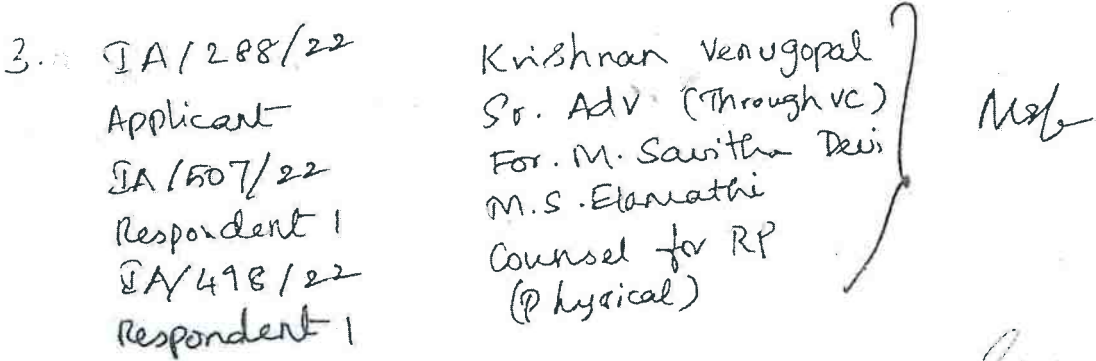 3. IA/288/22
Applicant
IA/507/22
Respondent 1
IA/498/22
Respondent 1
Krishnan Venugopal
Sr. Adv (Through VC)
For. M. Savitha Devi
M.S. Elamathi
Counsel for RP
(Physical)